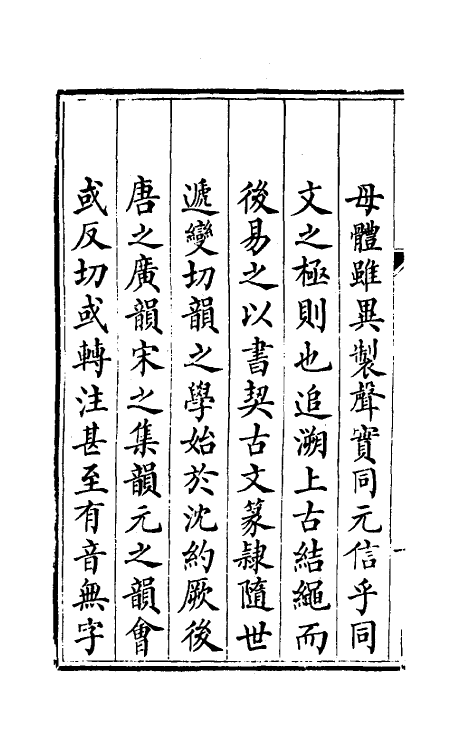 母體雖異製聲實同元信乎同
文之極則也追溯上古結繩而
後易之以書契古文篆隷隨世
遞變切韻之學始於沈約厥後
唐之廣韻宋之集韻元之韻會
或反切或轉注甚至有音無字